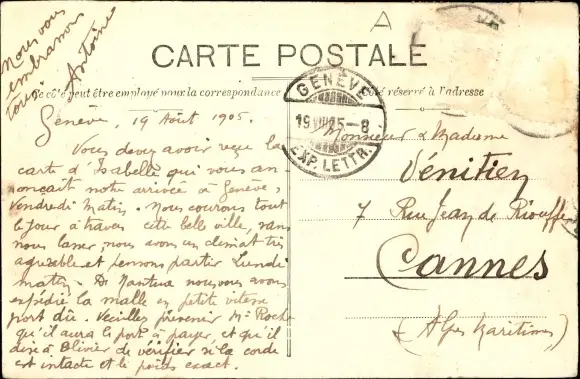 A
Nous vous
embrassons
tous
Antoine
CARTE POSTALE
Ce côté peut être employé pour la correspondance
Côté réservé à l'adresse
GENÈVE
19 VIII 05-8
EXP. LETTR.
Genève, 19 Août 1905.
Vous devez avoir reçu la
carte d'Isabelle qui vous an-
nonçait notre arrivée à Genève,
Vendredi Matin. Nous courons tout
le jour à travers cette belle ville, sans
nous lasser nous avons un climat très
agréable et pensons partir Lundi
matin. De Nantua nous vous avons
expédié la malle en petite vitesse
port dû. Veuillez prévenir Mr Roch
qu'il aura le port à payer et qu'il
dise à Olivier de vérifier si la corde
est intacte et le poids exact.
Monsieur & Madame
Vénitien
7 Rue Jean de Riouffe
Cannes
(Alpes Maritimes)